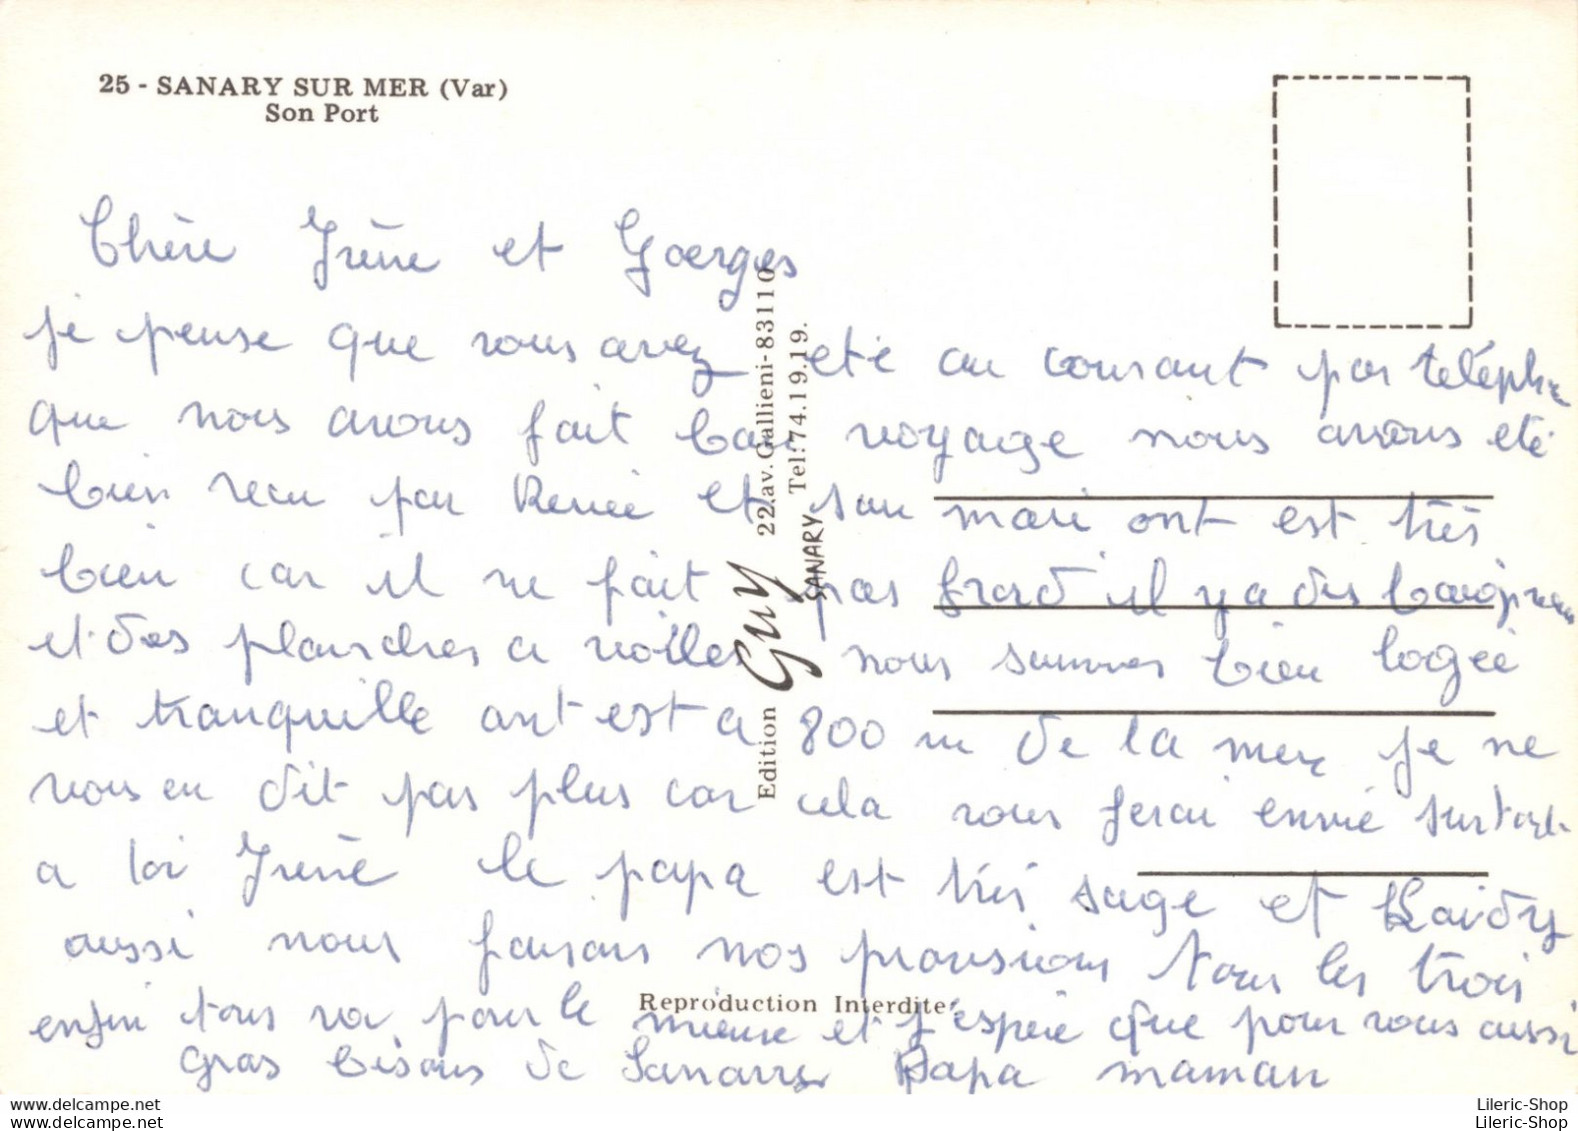 25 - SANARY SUR MER (Var)
Son Port
Chère Irène et Goerges
je pense que vous avez eté au courant par teléphone
que nous avons fait bon voyage nous avons eté
bien recu par Renée et son mari ont est très
bien car il ne fait pas froid il y a des baigneurs
et des planches a voilles nous sommes bien logée
et tranquille ont est a 800 m de la mer je ne
vous en dit pas plus car cela vous ferai envie surtout
a toi Irène le papa est très sage et
aussi nous faisons nos provisions tous les trois
enfin tous va pour le mieuse et j'espère que pour vous aussi
gras bisous de Papa maman
Edition Guy 22.av.Gallieni-83110
SANARY Tel:74.19.19.
Reproduction Interdite
www.delcampe.net
www.delcampe.net
Lileric-Shop
Lileric-Shop